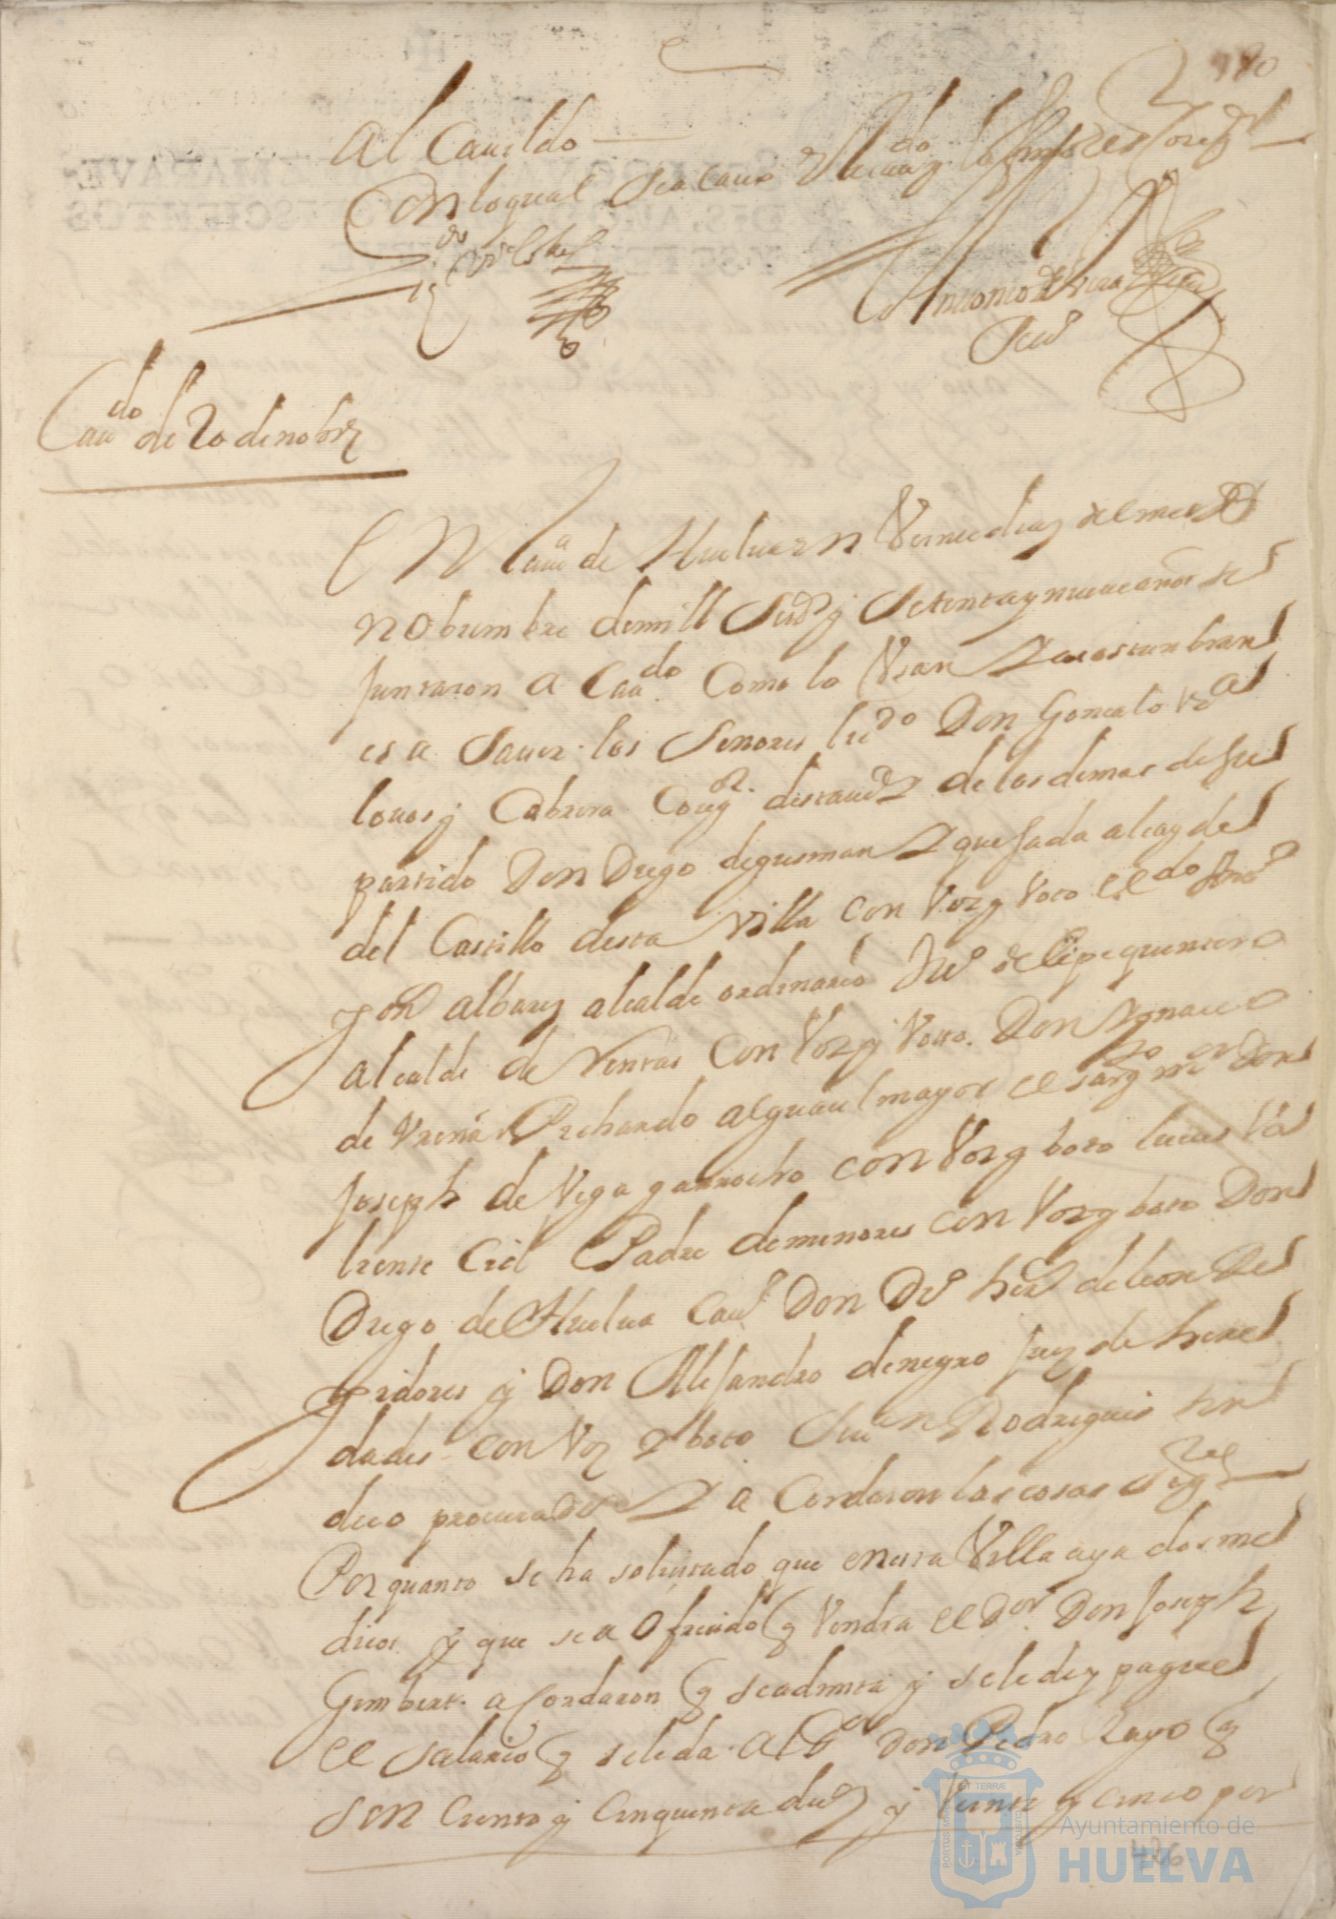 180
al Cavildo
Con lo qual se acavo el cavdo y lo firmaron
Antonio de
Scno
Cavdo de 20 de nobre
En la va de Huelva en Veinte dias del mes de
nobiembre de mill Seisos y Setenta y nueve años se
juntaron a Cavdo Como lo Usan y acostumbran
es a Saver los Señores lizdo Don Gonzalo
lovos y Cabrera Corregor desta va y de las demas de su
partido Don Diego de gusman y quesada alcayde
del Castillo desta villa con voz y voto el do
albarez alcalde ordinario Juo phelipe quintero
alcalde de Ventas con Voz y Voto Don Ygnacio
de Ureña Prehando alguacil mayor el sargto mor Don
Joseph de Vega garrocho con Voz y boto lucas Va
liente Padre de menores con Voz y boto Don
Diego de Huelva Don Do herz de leon Re
gidores y Don Alesandro de negro Juez de here
dades con Voz y boto Juan Rodrigues sin
dico procurador y a Cordaron las cosas sigtes
Por quanto se ha solisitado que en esta Villa aya dos me
dicos y que se a Ofresido q Vendra el Dor Don Joseph
Gimbert acordaron q se admita y se le de y pague
el salario q se le da al Dor Don Pedro Rayo q
son Ciento y Cinquenta dus y Veinte y cinco por
426
PORTUS MARIS ET TERRAE CUSTODIA
Ayuntamiento de
HUELVA